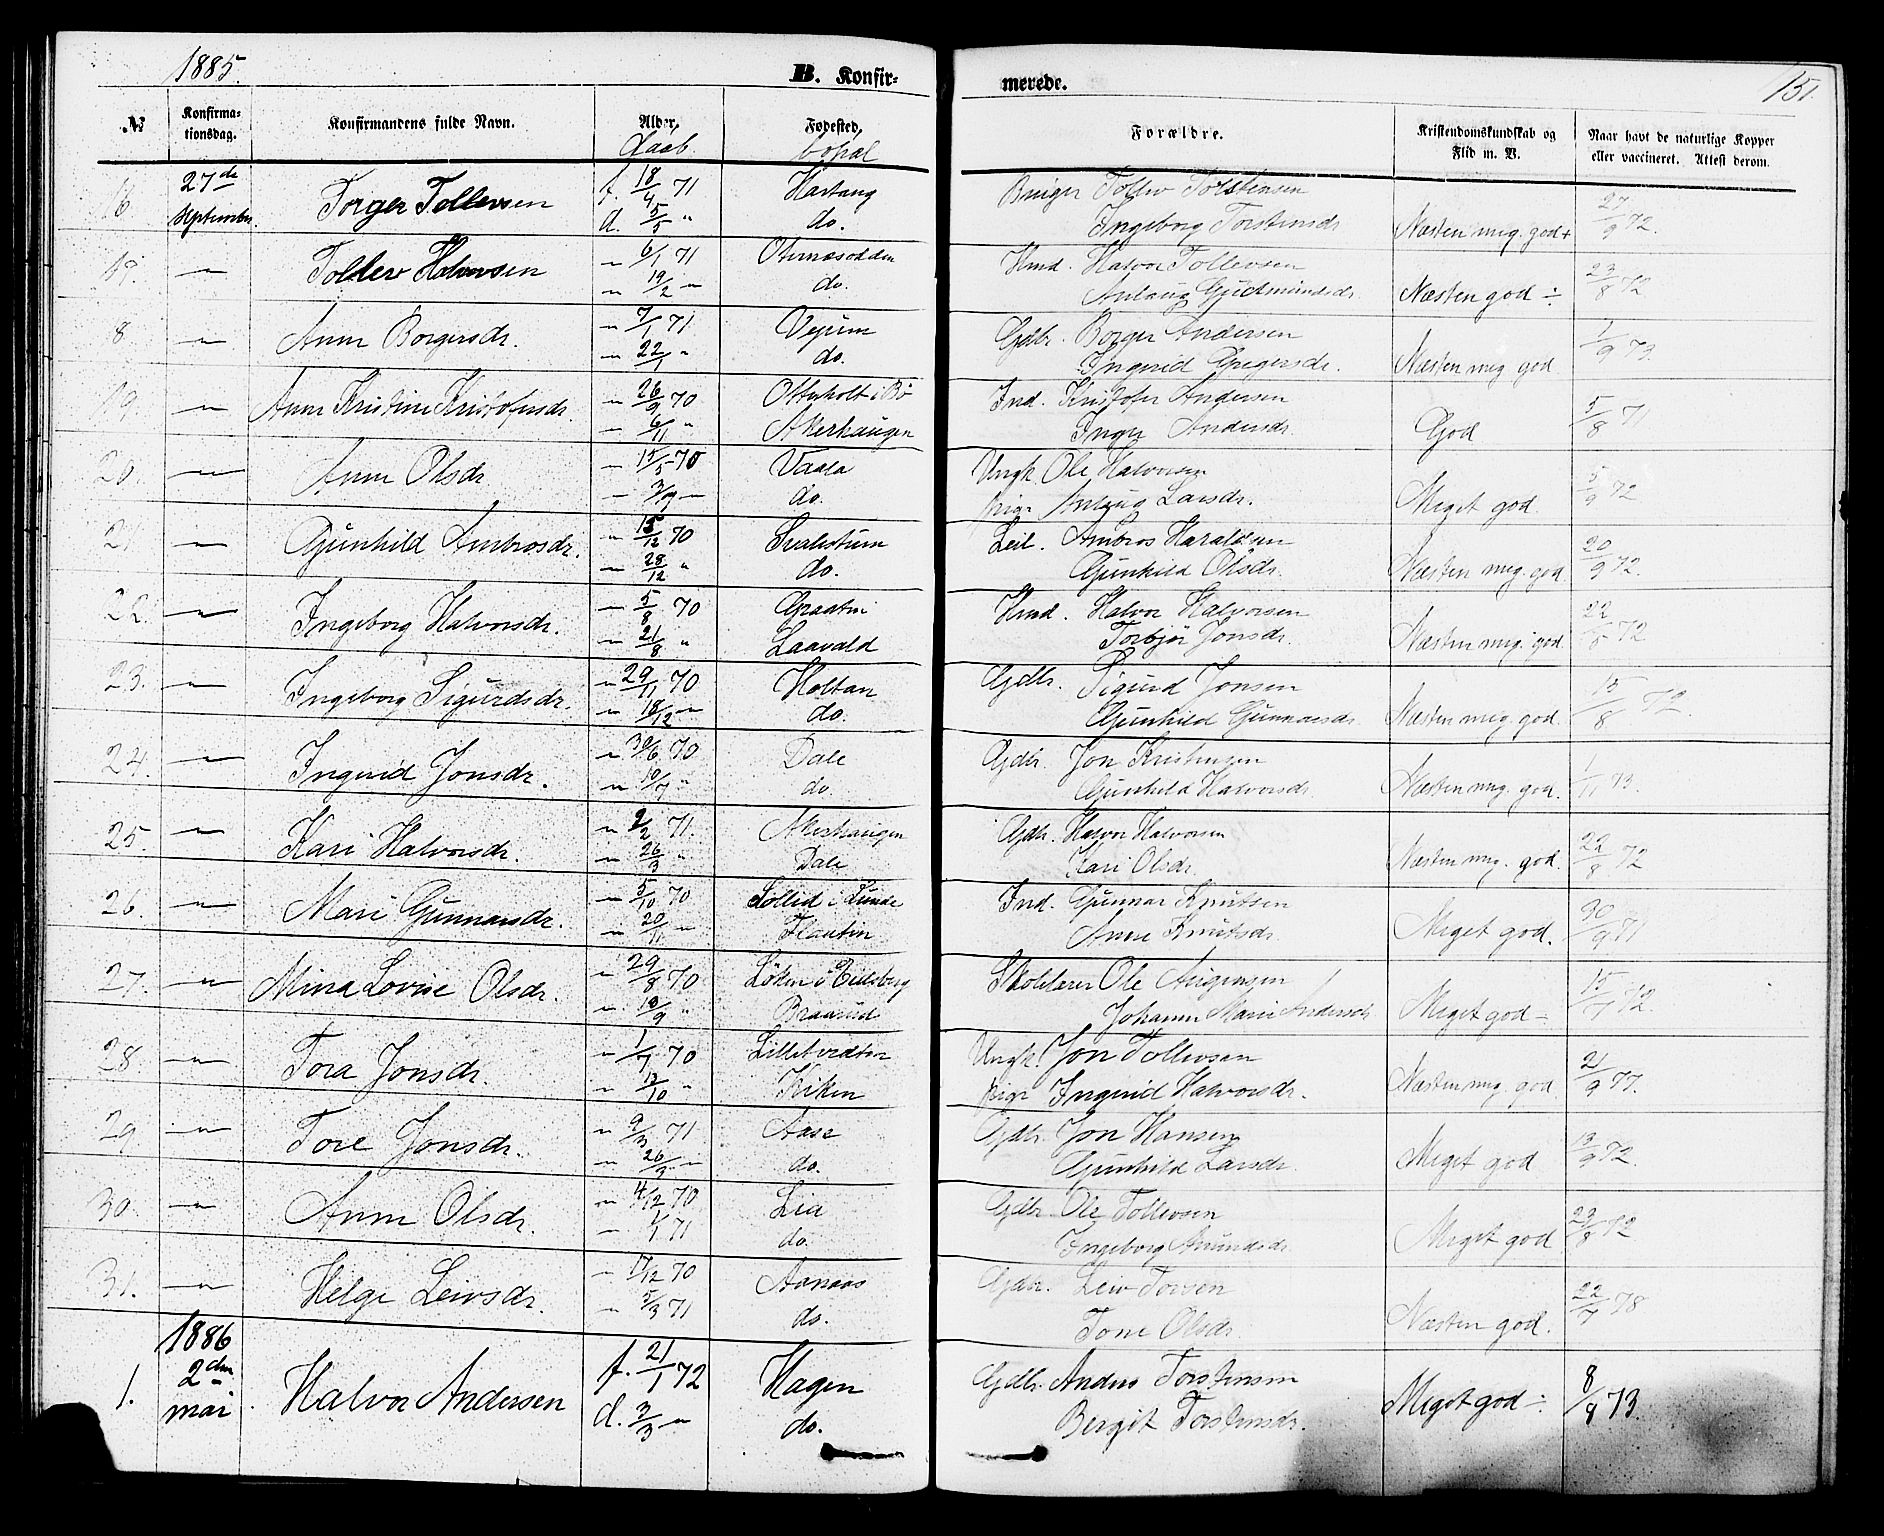 1885.
B. Konfir-
merede.
151.
№
Konfirma-
tionsdag.
Konfirmandens fulde Navn.
Alder,
Daab.
Fødested,
bopæl
Forældre.
Kristendomskundskab og
Flid m. V.
Naar havt de naturlige Kopper
eller vaccineret. Attest derom.
16. 27de September. Torger Tollevsen f. 18/4 71 Hartang
d. 5/5 " do.
Tollev Torstensen
Ingeborg Torstensdr. Næsten meg. god + 27/9 72.
17. — " — Tollev Halvorsen " 6/1 71 Oternæsodden
" 19/2 " do.
Hmd. Halvor Tollevsen
Anlaug Gudmundsdr. Næsten god ÷ 23/8 72
18. — " — Anne Borgersdr. " 7/1 71 Vejrim
" 22/1 " do.
Gdbr. Borger Andersen
Ingerid Gregersdr. Næsten meg god 1/9 73.
19. — " — Anne Kristine Kristofersdr. " 26/9 70 Otterholt i Bø
" 6/11 " Akerhaugen
Ind. Kristofer Andersen
Inger Andersdr. God 5/8 71
20. — " — Anne Olsdr. " 15/5 70 Vaala
do.
Ungk. Ole Halvorsen
pige Anlaug Larsdr. Meget god 5/9 72
21. — " — Gunhild Ambrosdr. " 15/12 70
" 28/12 " do.
Leil. Ambros Haraldsen
Gunhild Olsdr. Næsten meg. god 20/9 72.
22. — " — Ingeborg Halvorsdr. " 5/8 70 Graatin
" 21/8 " Laavald
Hmd. Halvor Halvorsen
Torbjør Jonsdr. Næsten meg. god 22/5 72
23. — " — Ingeborg Sigurdsdr. " 29/11 70 Holtan
" 18/12 " do.
Gdbr. Sigurd Jonsen
Gunhild Gunnarsdr. Næsten meg. god 15/8 72.
24. — " — Ingerid Jonsdr. " 30/6 70 Dale
" 10/7 " do.
Gdbr. Jon Kristensen
Gunhild Halvorsdr. Næsten meg. god. 1/11 73.
25. — " — Kari Halvorsdr. " 2/2 71. Akerhaugen
" 26/3 " Dale
Gdbr. Halvor Halvorsen
Kari Olsdr. Næsten meg. god 22/8 72
26. — " — Mari Gunnarsdr. " 5/10 70 Sollid i Lunde
" 20/11 " Flautin
Ind. Gunnar Knutsen
Anne Knutsdr. Meget god. 30/9 71
27. — " — Mina Lovise Olsdr. " 29/8 70 Løken i Eidsberg
" 18/9 " Braarud
Skolelærer Ole
Johanne Marie Andersdr. Meget god — 15/7 72.
28. — " — Tora Jonsdr. " 1/7 70
" 13/10 " Kiken
Ungk. Jon Tollevsen
pige Ingerid Halvorsdr. Næsten meg god 2/9 77.
29. — " — Tore Jonsdr. " 9/3 71 Aase
" 26/3 " do.
Gdbr. Jon Hansen
Gunhild Larsdr. Meget god 13/9 72.
30. — " — Anne Olsdr. " 4/12 70 Lia
71 do.
Gdbr. Ole Tollevsen
Ingeborg Amundsdr. Meget god 23/8 72
31. — " — Helge Leivsdr. " 17/12 70 Aanaas
" 5/3 71 do.
Gdbr. Leiv Torsen
Tone Olsdr. Næsten god. 22/7 78
1886
1. 2den mai Halvor Andersen f. 21/1 72 Hagen
d. 3/3 " do.
Gdbr. Anders Torstensen
Bergit Torstensdr. Meget god ÷ 8/9 73.